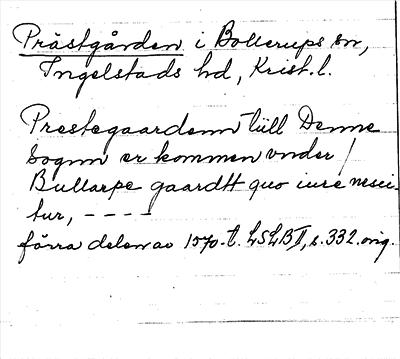 Prästgården i Bollerups sn,
Ingelstads hd, Krist. l.
Prestegaardenn till Denne
Sognn er kommen vnder /
Bullarpe gaardtt quo iure nesci-
tur, – – – –
förra delen av 1570-t. LSLB II, s. 332. orig.